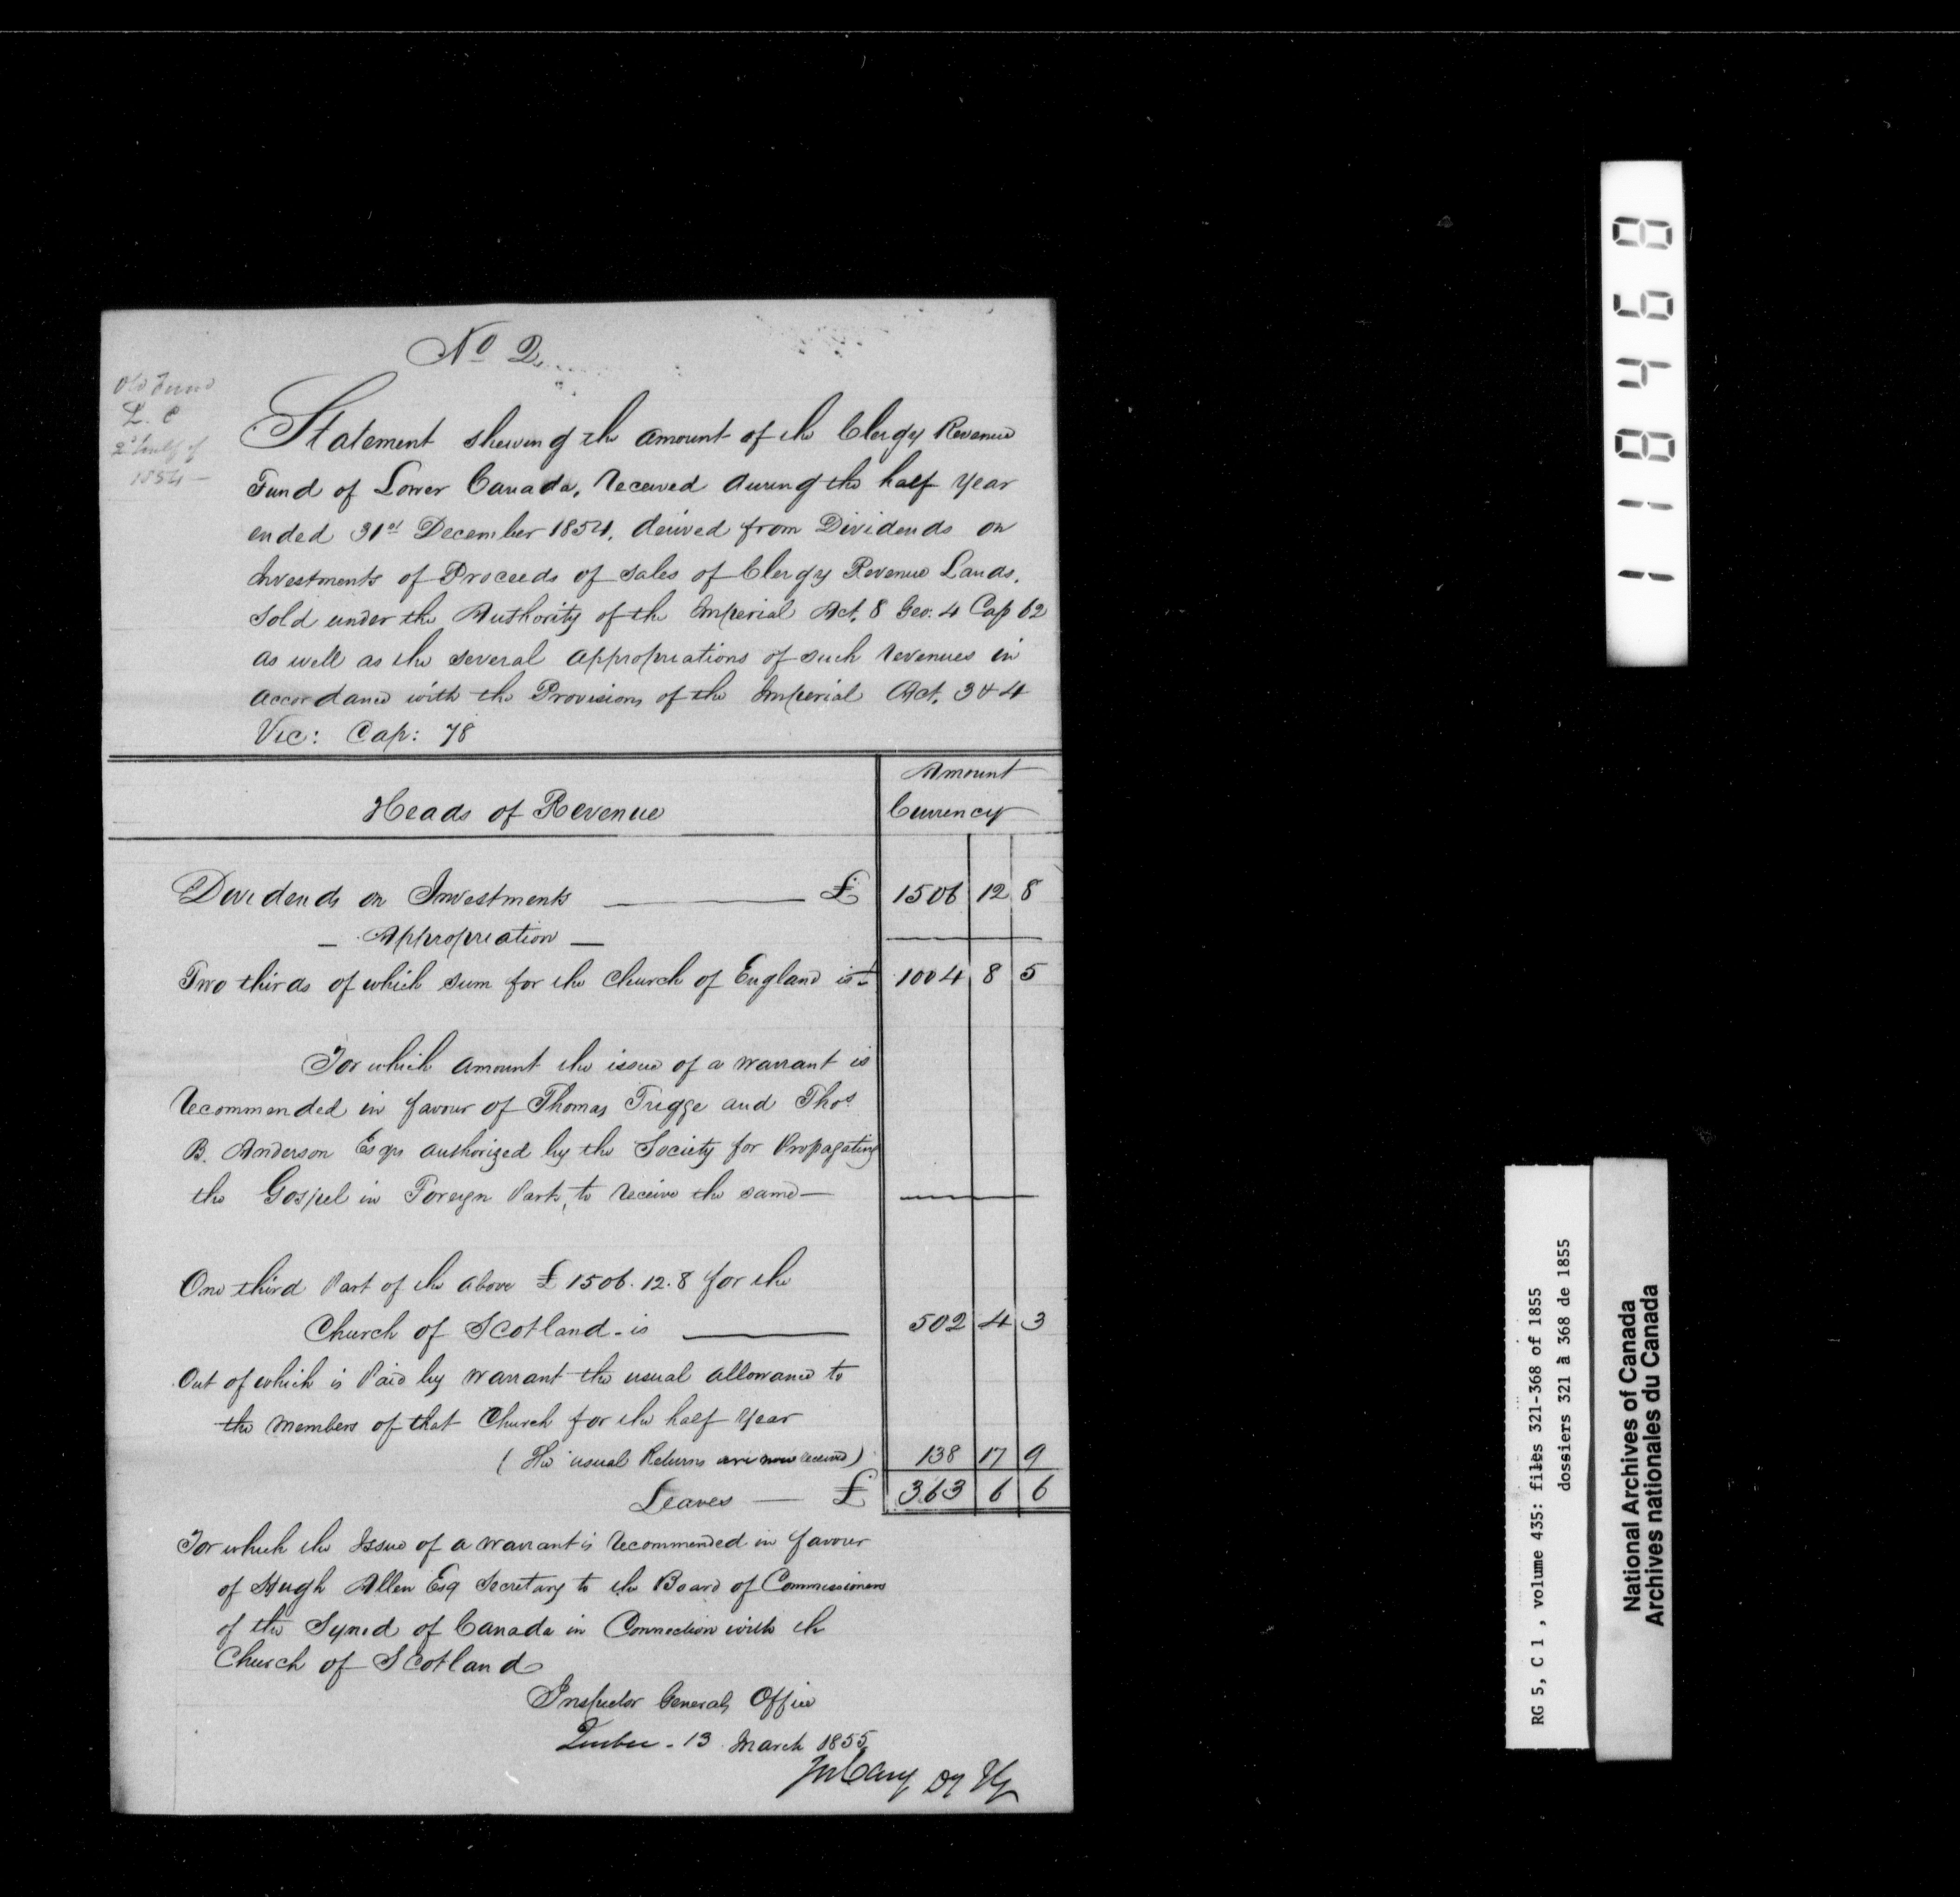 No 2.
Old Fund
L. C
2d half of
1854 —
Statement shewing the amount of the Clergy Revenue
Fund of Lower Canada, received during the half year
ended 31st December 1854, derived from Dividends on
Investments of Proceeds of sales of Clergy Revenue Lands,
sold under the Authority of the Imperial Act, 8 Geo. 4 Cap 62
as well as the several appropriations of such revenues in
accordance with the Provisions of the Imperial Act, 3 & 4
Vic: Cap: 78
Heads of Revenue
Amount
Currency
Dividends on Investments — £ 1506 12 8
— Appropriation —
Two thirds of which sum for the Church of England is £ 1004 8 5
For which amount the issue of a warrant is
recommended in favour of Thomas Trigge and Thos
B. Anderson Esqrs authorized by the Society for Propagating
the Gospel in Foreign Parts, to receive the same —
One third Part of the above £1506.12.8 for the
Church of Scotland is — 502 4 3
Out of which is Paid by warrant the usual allowance to
the members of that Church for the half Year
(The usual Returns are now received) 138 17 9
Leaves — £ 363 6 6
For which the Issue of a warrant is recommended in favour
of Hugh Allen Esq Secretary to the Board of Commissioners
of the Synod of Canada in Connection with the
Church of Scotland
Inspector Generals Office
Quebec - 13 March 1855
Jos Cary Dy IG
118468
RG 5, C 1 , volume 435: files 321-368 of 1855
dossiers 321 à 368 de 1855
National Archives of Canada
Archives nationales du Canada